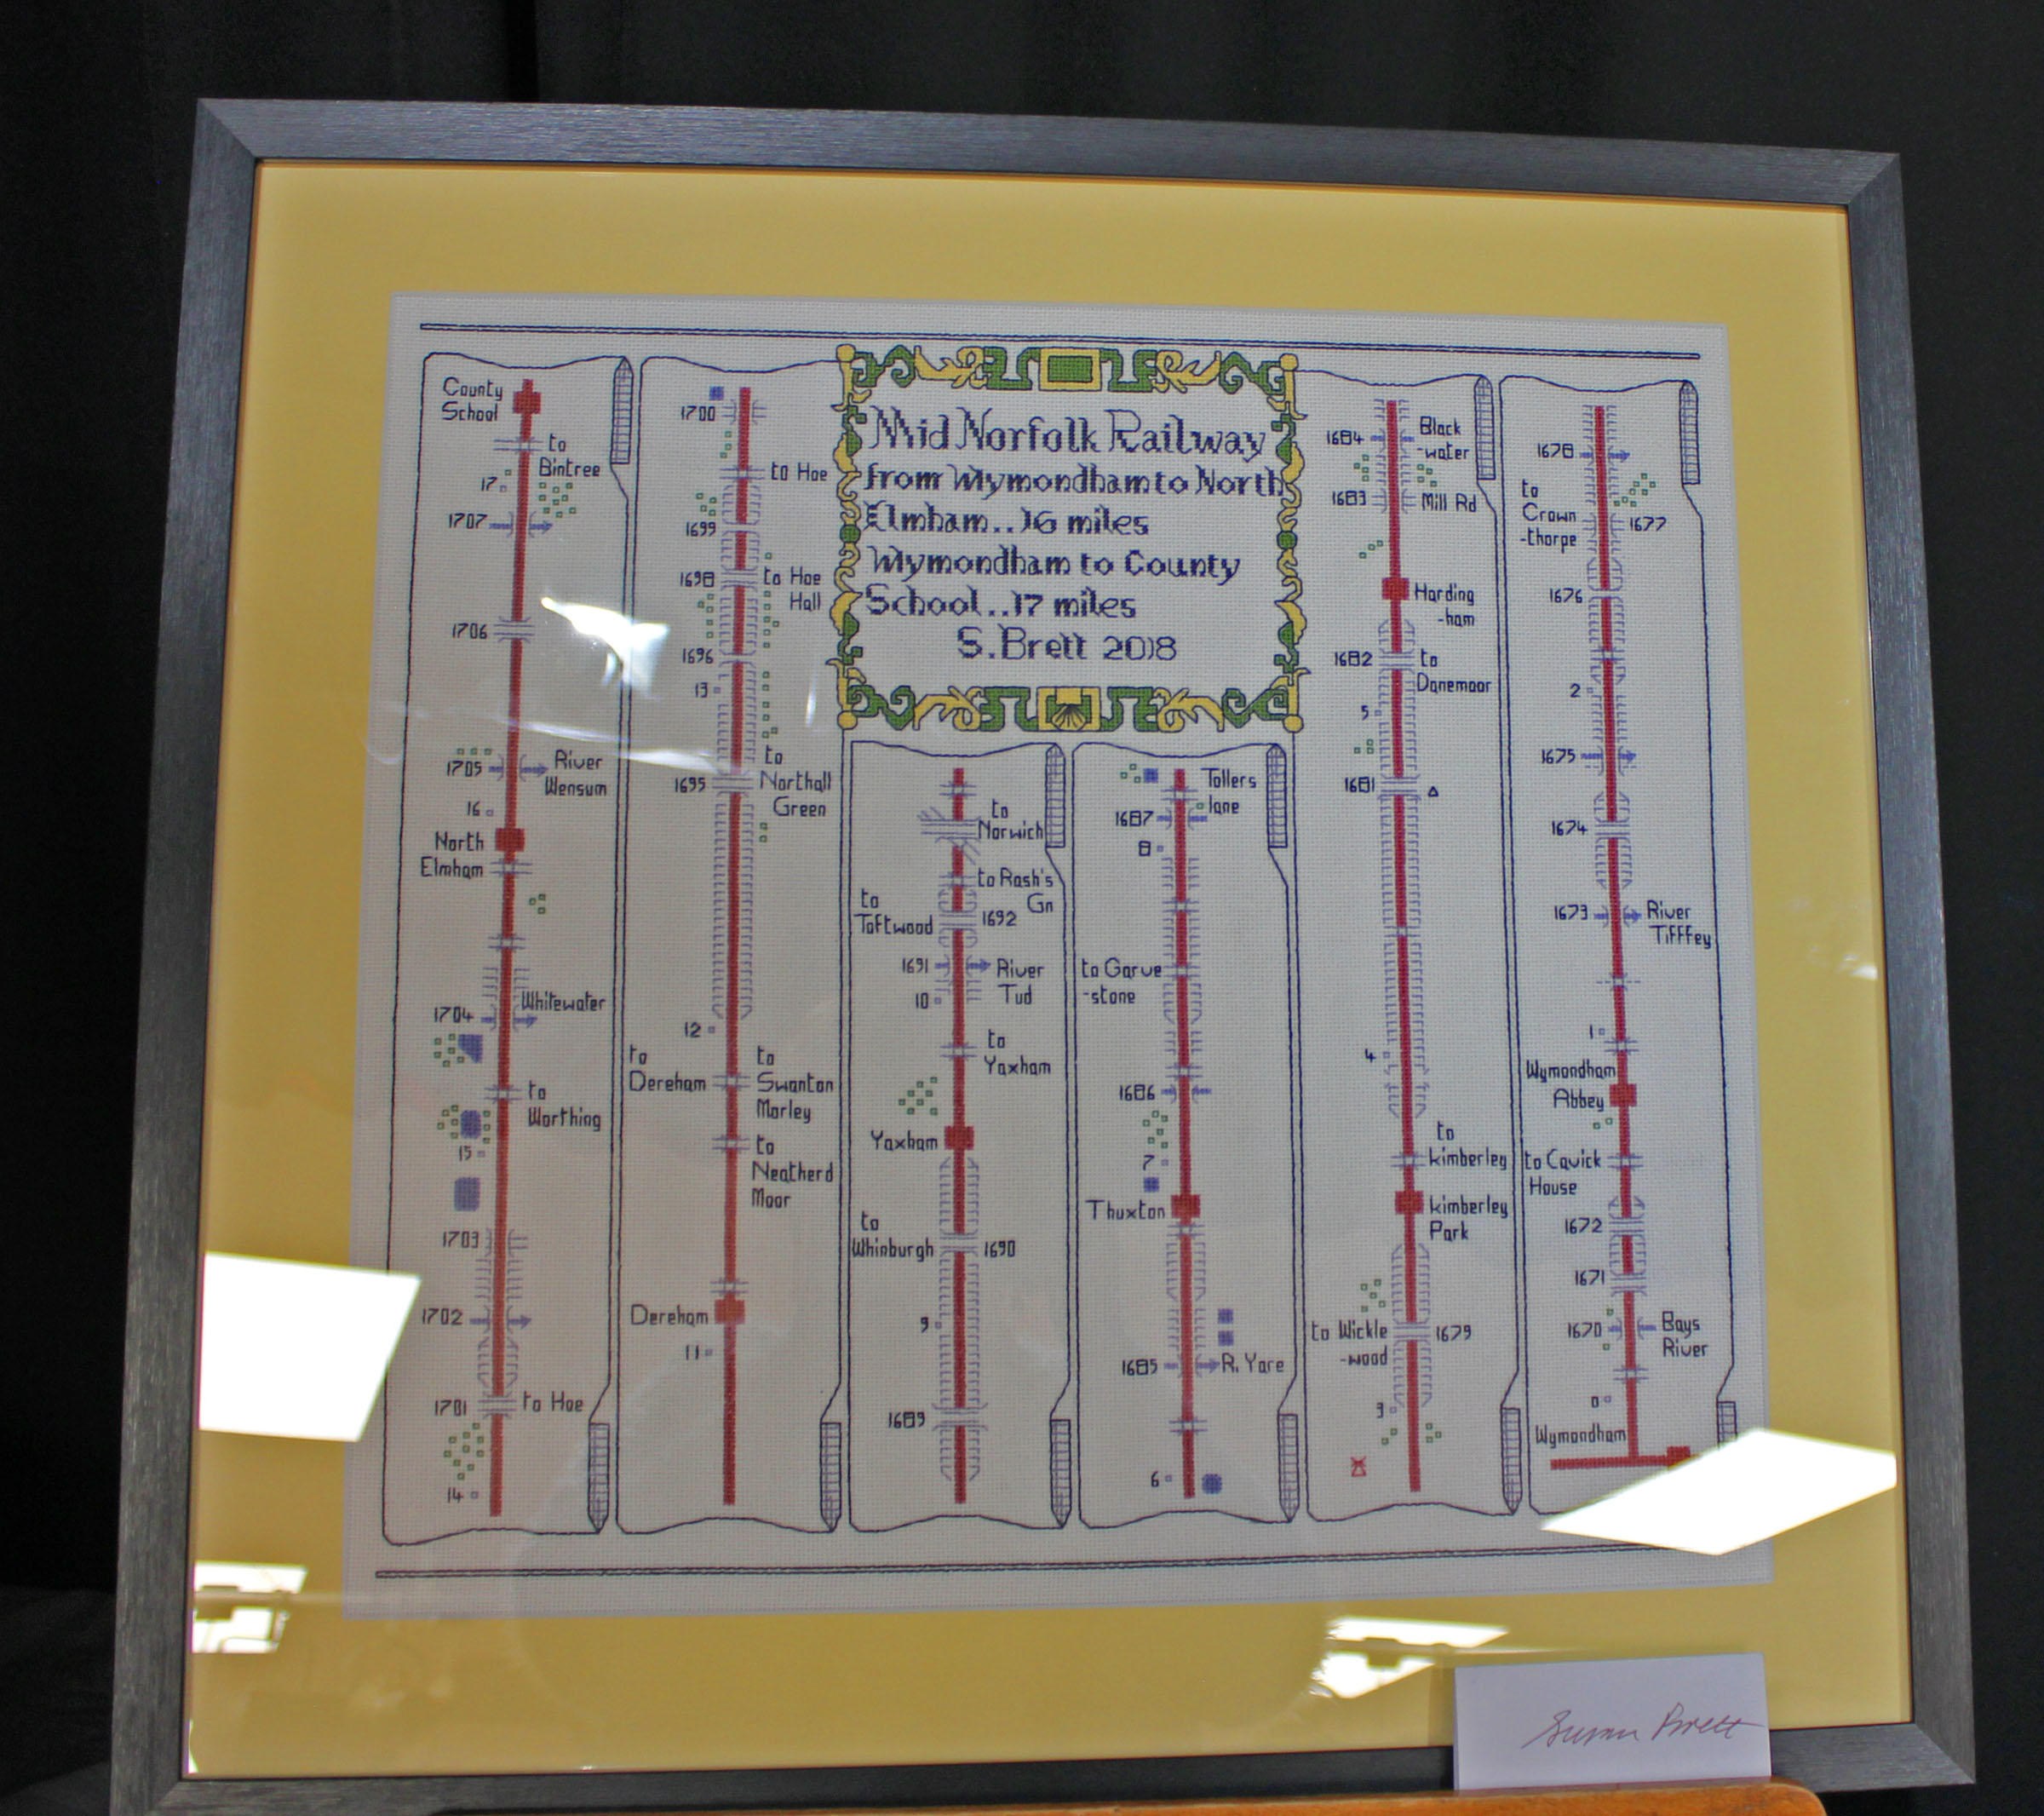 Mid Norfolk Railway
from Wymondham to North
Elmham..16 miles
Wymondham to County
School..17 miles
S.Brett 2018
County
School
to
Bintree
17
1707
1706
River
Wensum
1705
16
North
Elmham
Whitewater
1704
to
Worthing
15
1703
1702
1701
to Hoe
14
1700
to Hoe
1699
1698
to Hoe
Hall
1696
13
to
Northall
Green
1695
12
to
Dereham
to
Swanton
Morley
to
Neatherd
Moor
Dereham
11
to
Norwich
to Rash's
Gn
to
Toftwood
1692
1691
River
Tud
10
to
Yaxham
Yaxham
to
Whinburgh
1690
9
1689
Tollers
lane
1687
8
to Garve
-stone
1686
7
Thuxton
1685
R. Yare
6
1684
Black
-water
1683
Mill Rd
Harding
-ham
1682
to
Danemoor
5
1681
4
to
kimberley
kimberley
Park
to Wickle
-wood
1679
3
1678
to
Crown
-thorpe
1677
1676
2
1675
1674
1673
River
Tifffey
1
Wymondham
Abbey
to Cavick
House
1672
1671
1670
Bays
River
0
Wymondham
Susan Brett